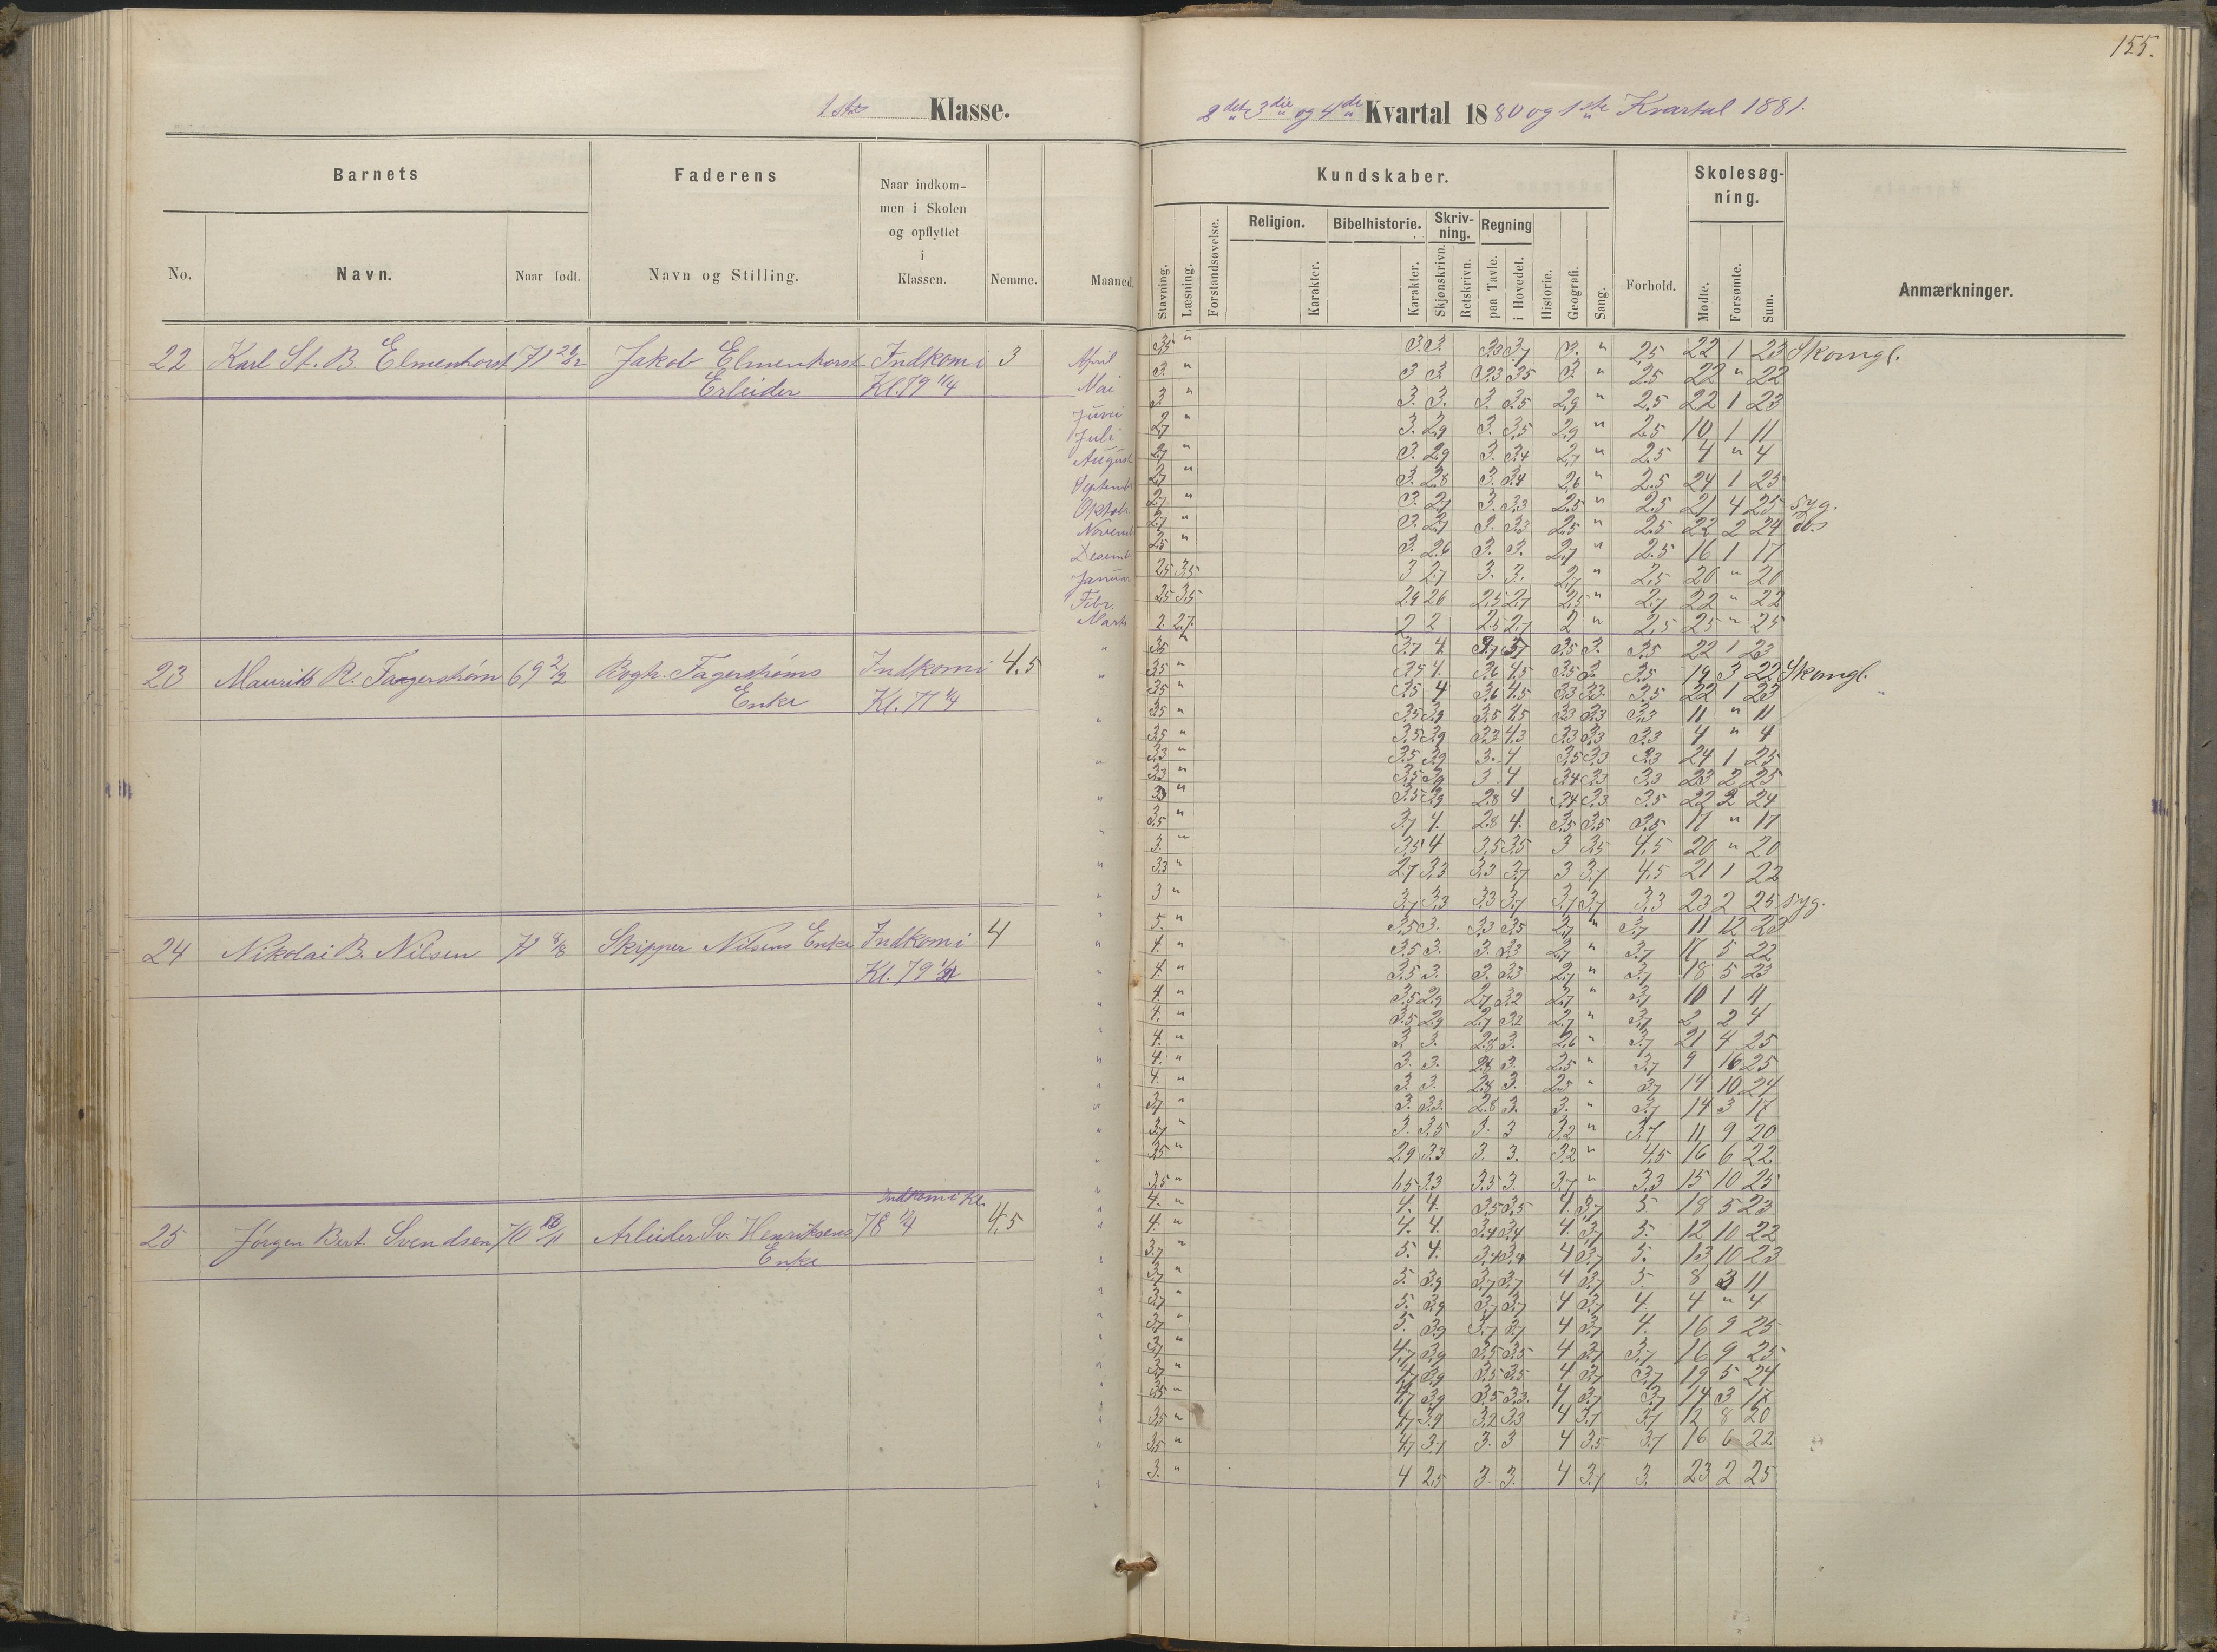 155.
1ste Klasse.
2det 3die og 4de Kvartal 1880 og 1ste Kvartal 1881.
Barnets
Faderens
Naar indkommen i Skolen og opflyttet i Klassen.
Nemme.
Maaned.
No.
Navn.
Naar født.
Navn og Stilling.
Kundskaber.
Skolesøgning.
Religion.
Bibelhistorie.
Skrivning.
Regning
Stavning.
Læsning.
Forstandsøvelse.
Karakter.
Karakter.
Skjønskrivn.
Retskrivn.
paa Tavle.
i Hovedet.
Historie.
Geografi.
Sang.
Forhold.
Mødte.
Forsømte.
Sum.
Anmærkninger.
22 Karl St. B. Elmenhorst 71 Jakob Elmenhorst Indkom i 3
Erleider Kl. 79 1/4
April 3,5 " 3. 3. 3,3 3,7 3. " 2,5 22 1 23 Skomgl.
Mai 3. " 3 3 3,3 3,5 3. " 2,5 22 " 22
Juni 3. " 3. 3. 3. 3,5 2,9 " 2,5 22 1 23
Juli 2,7 " 3. 2,9 3. 3,5 2,9 " 2,5 10 1 11
August 2,7 " 3. 2,9 3. 3,4 2,7 " 2,5 4 " 4
Septemb 2,7 " 3. 2,8 3. 3,4 2,6 " 2,5 24 1 25
Oktob 2,7 " 3. 2,7 3. 3,3 2,5 " 2,5 21 4 25 Syg.
Novemb 2,7 " 3. 2,7 3. 3,3 2,5 " 2,5 22 2 24 Do.
Desemb 2,5 " 3. 2,6 3. 3. 2,7 " 2,5 16 1 17
Januar 2,5 3,5 3 2,7 3. 3. 2,7 " 2,5 20 " 20
Febr. 2,5 3,5 2,9 2,6 2,5 2,7 2,5 " 2,7 22 " 22
Marts 2. 2,7 2 2 2,5 2,7 2 " 2,5 25 " 25
23 Maurits R. Fagerstrøm 69 Fagerstrøms Indkom i 4,5
Enke Kl. 77 1/4
3,5 " 3,7 4. 3,7 3,5 3. 3,5 22 1 23
3,5 " 3,5 4. 3,6 4,5 3,5 3. 3,5 19 3 22 Skomgl.
3,5 " 3,5 4 3,6 4,5 3,3 3,3 3,5 22 1 23 "
3,5 " 3,5 3,9 3,5 4,5 3,3 3,3 3,3 11 " 11
3,5 " 3,5 3,9 3,2 4,3 3,3 3,3 3,3 4 " 4
3,3 " 3,5 3,9 3. 4 3,5 3,3 3,3 24 1 25
3,3 " 3,5 3,9 3 4 3,4 3,3 3,3 23 2 25
" 3,5 3,9 2,8 4 3,4 3,3 3,5 22 2 24
3,5 " 3,7 4. 2,8 4. 3,5 3,5 3,5 17 " 17
3. " 3,5 4 3,5 3,5 3 3,5 4,5 20 " 20
3,3 " 2,7 3,3 3,3 3,7 3 3,7 4,5 21 1 22
3 " 3,7 3,3 3,3 3,7 3,7 3,7 3,3 23 2 25 Syg.
24 Nikolai B. Nilsen 71 Skipper Nilsens Enke Indkom i 4
Kl. 79
5. " 3,5 3. 3,3 3,5 2,7 " 3,7 11 12 23
4. " 3,5 3. 3. 3,3 2,7 " 3,7 17 5 22
4. " 3,5 3. 3. 3,3 2,7 " 3,7 18 5 23
4. " 3,5 2,9 2,7 3,2 2,7 " 3,7 10 1 11
4. " 3,5 2,9 2,7 3,2 2,7 " 3,7 2 2 4
4. " 3 3. 2,8 3. 2,6 " 3,7 21 4 25
4. " 3. 3. 2,8 3. 2,5 " 3,7 9 16 25
4. " 3. 3. 2,8 3. 2,5 " 3,7 14 10 24
3,7 " 3. 3,3. 2,8 3. 3. " 3,7 14 3 17
3,7 " 3. 3,5 3. 3 3,2 " 3,7 11 9 20
3,5 " 2,9 3,3 3. 3. 3,2 " 4,5 16 6 22
3,5 " 1,5 3,3 3,5 3. 3,7 " 3,3 15 10 25
Indkom i Kl.
25 Jørgen Bert. Svendsen 70 Arbeider Sv. Henriksens 78 4,5
Enke
4. " 4. 4. 3,5 3,5 4. 3,7 5. 18 5 23
4. " 4. 4. 3,4 3,4 4. 3,7 5. 12 10 22
3,7 " 5. 4. 3,4 3,4 4 3,7 5. 13 10 23
3,7 " 5. 3,9 3,7 3,7 4 3,7 5. 8 3 11
3,7 " 5. 3,9 3,7 3,7 4 3,7 4. 4 " 4
3,7 " 5. 3,9 3,7 3,7 4 3,7 4. 16 9 25
3,7 " 4,7 3,9 3,5 3,5 4 3,7 3,7 16 9 25
3,7 " 4,7 3,9 3,5 3,5 4 3,7 3,7 19 5 24
3,5 " 4,7 3,9 3,5 3,3. 4 3,7 3,7 14 3 17
3,5 " 4,7 3,9 3,2 3,3 4 3,7 3,7 12 8 20
3,5 " 4,7 3,7 3. 3 4 3,5 3,7 16 6 22
3. " 4 2,5 3. 3. 4 3,7 3. 23 2 25